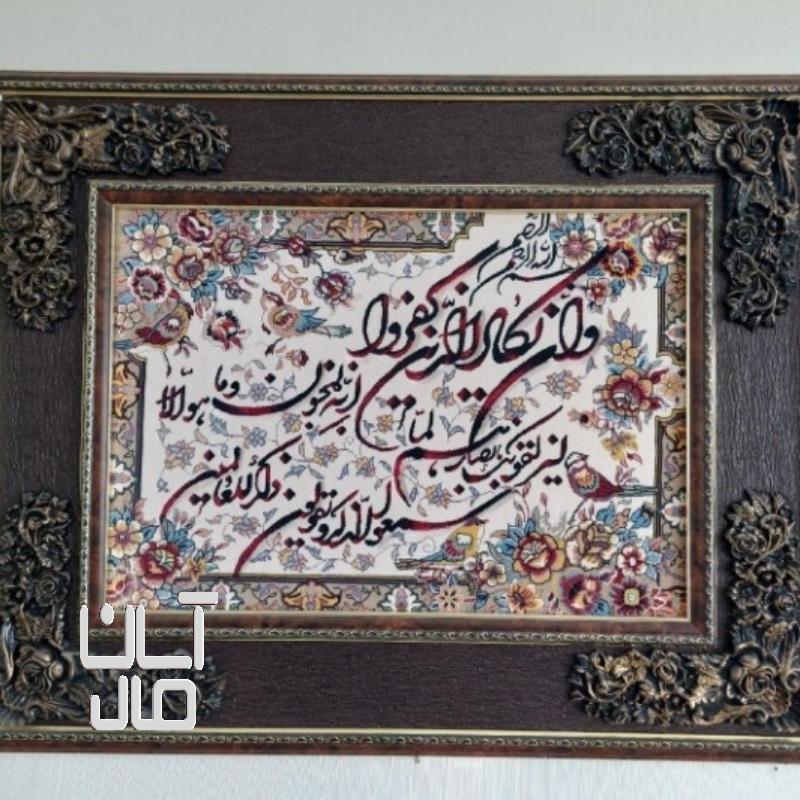 بسم الله الرحمن الرحیم
وان یکاد الذین کفروا
لیزلقونک بابصارهم لما
سمعوا الذکر و یقولون
انه لمجنون وما هو الا
ذکر للعالمین
آسان
مال